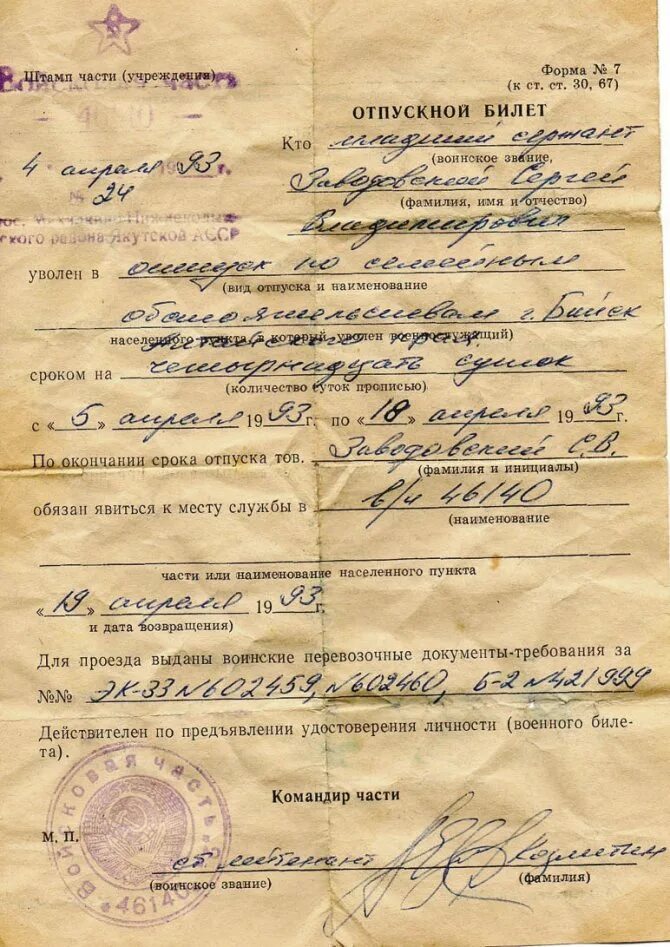 Штамп части (учреждения)
Войсковая часть
— 46140 —
4 апреля 1993 г.
№ 24
пос.
ского района Якутской АССР
Форма № 7
(к ст. ст. 30, 67)
ОТПУСКНОЙ БИЛЕТ
Кто младший сержант
(воинское звание,
Заводовский Сергей
(фамилия, имя и отчество)
Владимирович
уволен в отпуск по семейным
(вид отпуска и наименование
обстоятельствам г. Бийск
населенного пункта, в который уволен военнослужащий)
Алтайского края
сроком на четырнадцать суток
(количество суток прописью)
с «5» апреля 1993 г. по «18» апреля 1993 г.
По окончании срока отпуска тов. Заводовский С.В.
(фамилия и инициалы)
обязан явиться к месту службы в в/ч 46140
(наименование
части или наименование населенного пункта
«19» апреля 1993 г.
и дата возвращения)
Для проезда выданы воинские перевозочные документы-требования за
№№ ЭК-33 №602459, №602460, Б-2 №421999
Действителен по предъявлении удостоверения личности (военного биле-
та).
Командир части
М. П.
ст. лейтенант
(воинское звание)
(фамилия)
Войсковая часть
46140